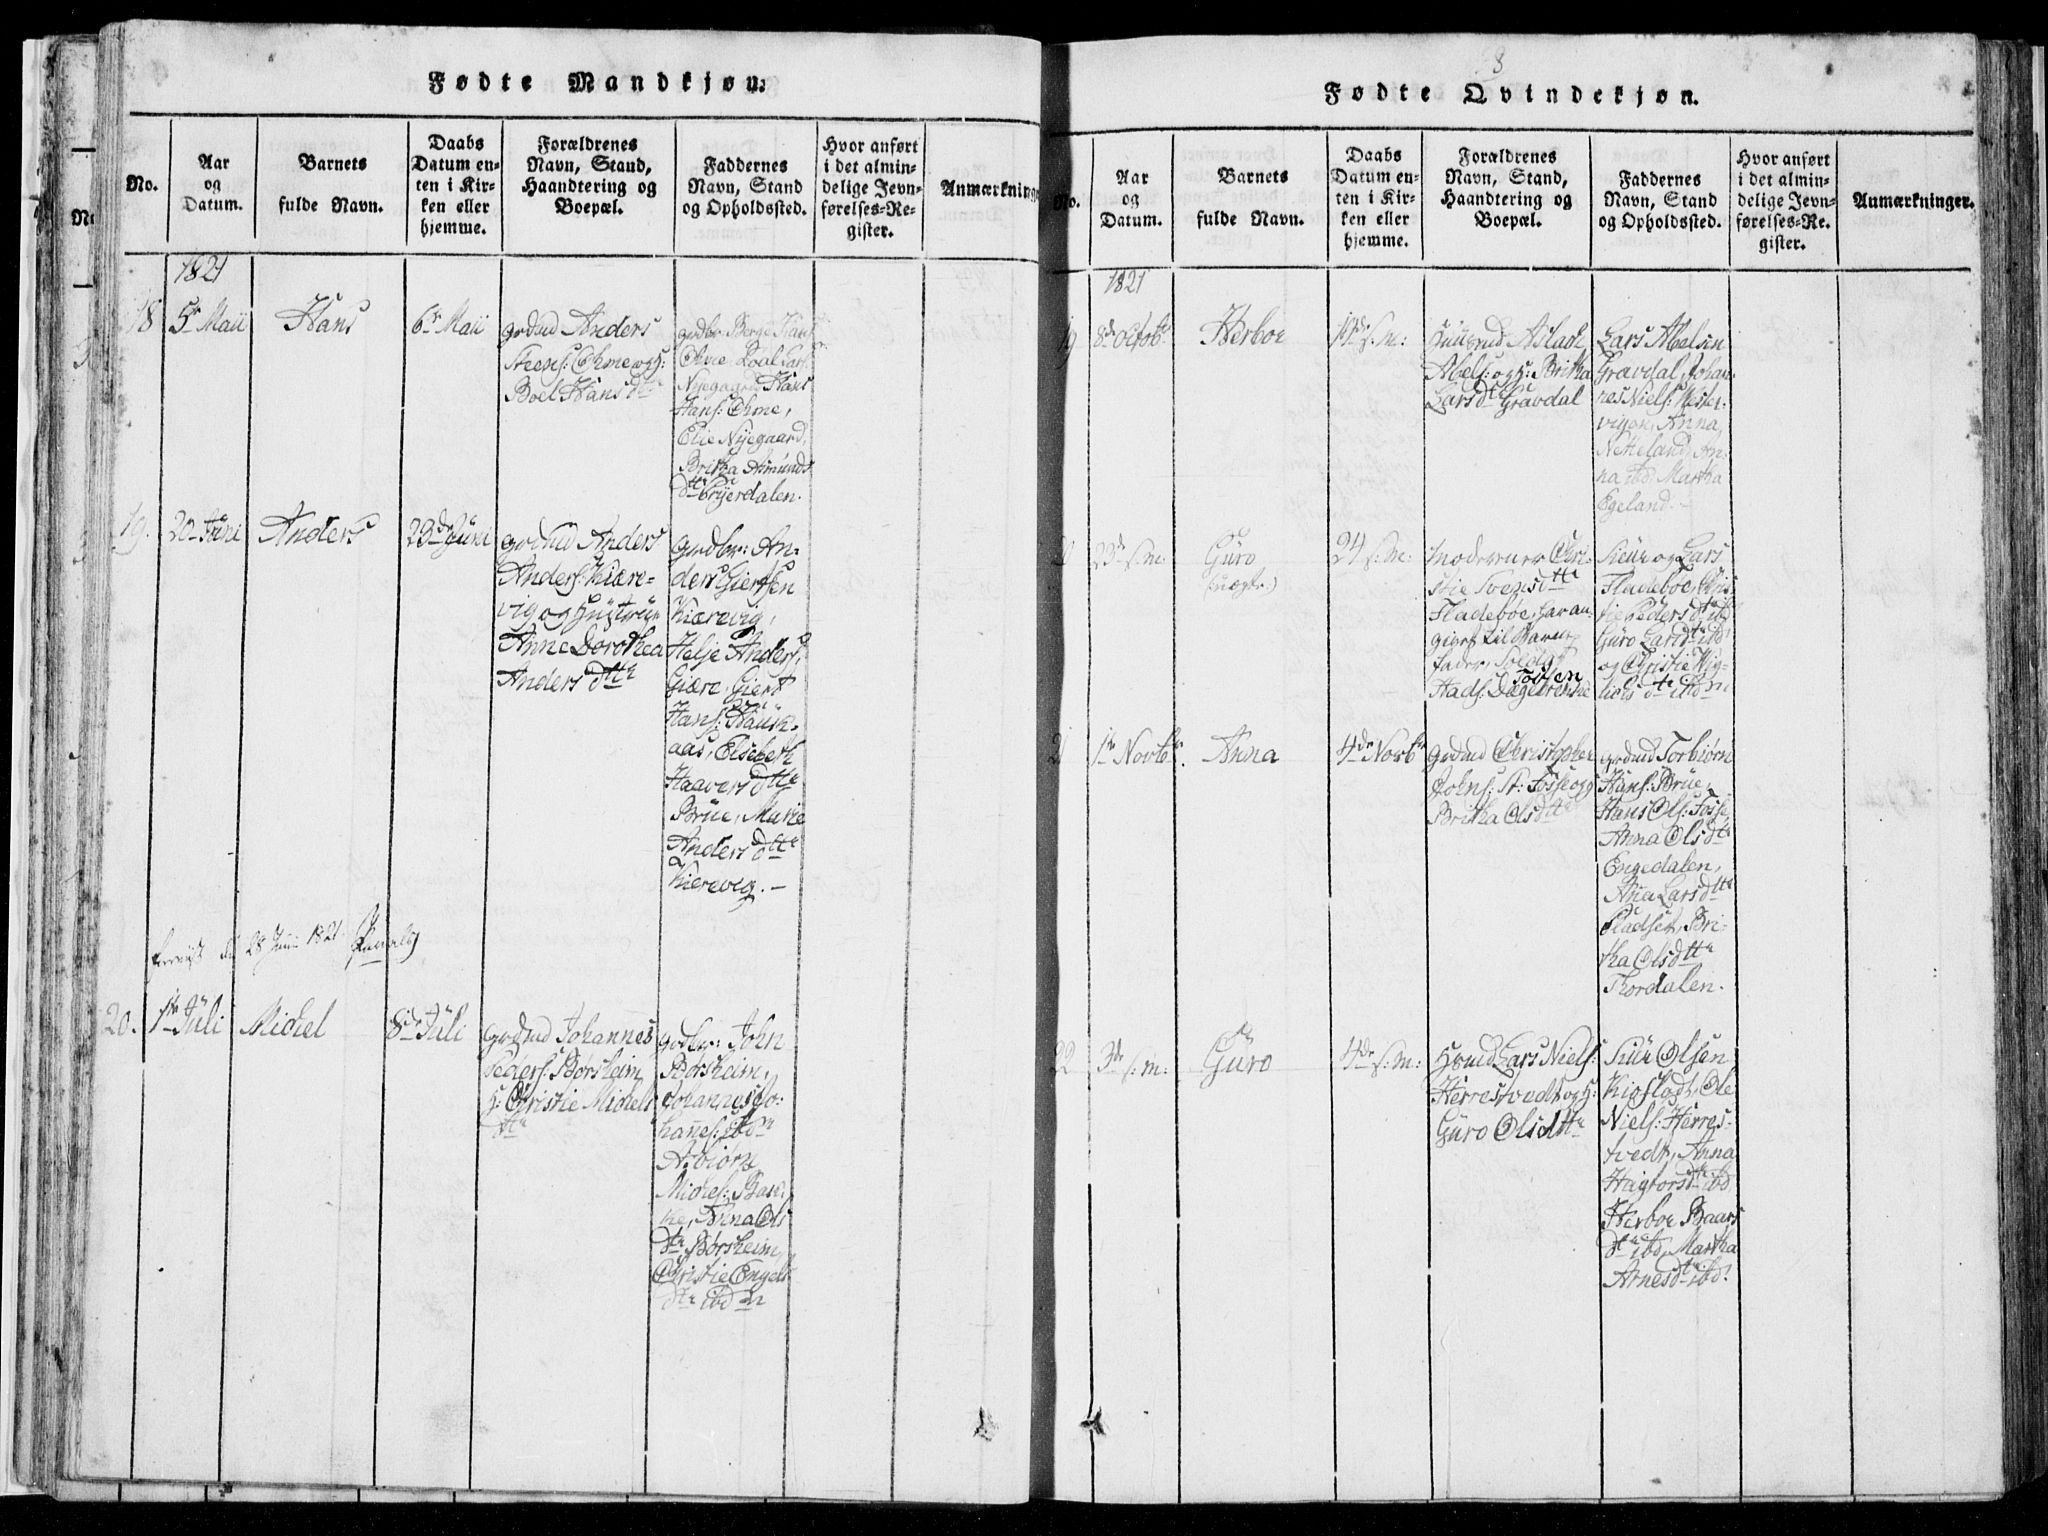 Fødte Mandkjøn.
No.
Aar
og
Datum.
Barnets
fulde Navn.
Daabs
Datum en-
ten i Kir-
ken eller
hjemme.
Forældrenes
Navn, Stand,
Haandtering og
Boepæl.
Faddernes
Navn, Stand
og Opholdssted.
Hvor anført
i det almin-
delige Jevn-
førelses-Re-
gister.
Anmærkninger
1821
18
5te Maii
Hans
6te Maii
Anders
Steens: Ohme og H:
Boel Hans dtr
Berge Hans
Ohme, Roal Lars:
Nyegaard, Hans
Hans: Ohme,
Elie Nyegaard,
Britha Asmunds
dtr
19.
20 Juni
Anders
23de Juni
Grdmd Anders
Anders: Kiære-
vig og Hustrue
Anne Dorothea
Anders dtr
Grdbr: An-
ders Giertsen
Kiærevig,
Helje Anders:
Giære, Giert
Hans: Hauk-
aas, Elsebeth
Haavers dtr
Brüe, Marie
Anders dtr
Kierevig. -
28 Juni 1821
20.
1te Juli
Michel
8de Juli
Grdmd Johannes
Peders: Børsheim
H: Christie Michels
dtr
Grdbr: John
Børsheim,
Johannes Jo-
hannes: ibdm
Asbiørn
Michels:
Anna Ols
dtr Børsheim,
Christie Engels
dtr ibdm
8
Fødte Qvindekjøn.
No.
Aar
og
Datum.
Barnets
fulde Navn.
Daabs
Datum en-
ten i Kir-
ken eller
hjemme.
Forældrenes
Navn, Stand,
Haandtering og
Boepæl.
Faddernes
Navn, Stand
og Opholdssted.
Hvor anført
i det almin-
delige Jevn-
førelses-Re-
gister.
Anmærkninger.
1821
19
8de Octobr
Herboe
14de s: m:
Aslach
Abels: og H: Britha
Larsdtr Gravdal
Lars Abelsen
Gravdal, Johan-
nes Niels:
Anna
Netteland, An-
na ibd, Martha
Egeland. -
23de s: m:
Guro
(uægte)
24 s: m:
Moderen er Chri-
stie Svensdtr
Fladeboe, har an-
givet til Barne-
fader,
Tostsen
og Lars
Fladeboe, Chris-
tie Pedersdtr
Guro Larsdtr ibd
og Christie Vig-
dtr ibdm
21
1te Novbr.
Anna
4de Novbr
Grdmd Christopher
Johns: St: Fosse og H
Britha Olsdtr
Grdmd Torbiørn
Hans: Brüe,
Hans Ols: Fosse,
Anna Olsdtr
Engedalen,
Ana Larsdtr
Pladset, Bri-
tha Olsdtr
Thordalen.
22
3de s: m:
Guro
4de s: m:
Hsmd Lars Niels:
Herrestvedt og H:
Guro Olsdtr
Siur Olsen
Ole
Niels: Herres-
tvedt, Anna
Hagtorsdtr ibd
Herboe Baars
dtr ibd, Martha
Arnesdtr ibd: